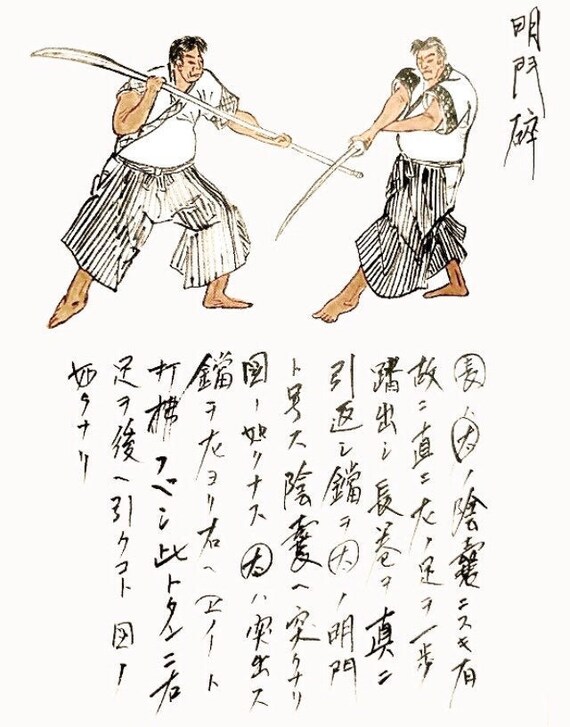 明門碎
長ハ太ノ陰嚢ニスキ有
故ニ直ニ左ノ足ヲ一歩
踏出シ長巻ヲ真ニ
引返シ鐺ヲ太ノ明門
ト号ス陰嚢ヘ突クナリ
図ノ如クナス太ハ突出ス
鐺ヲ左ヨリ右ヘ
打拂フベシ此トタンニ右
足ヲ後ヘ引クコト図ノ
如クナリ